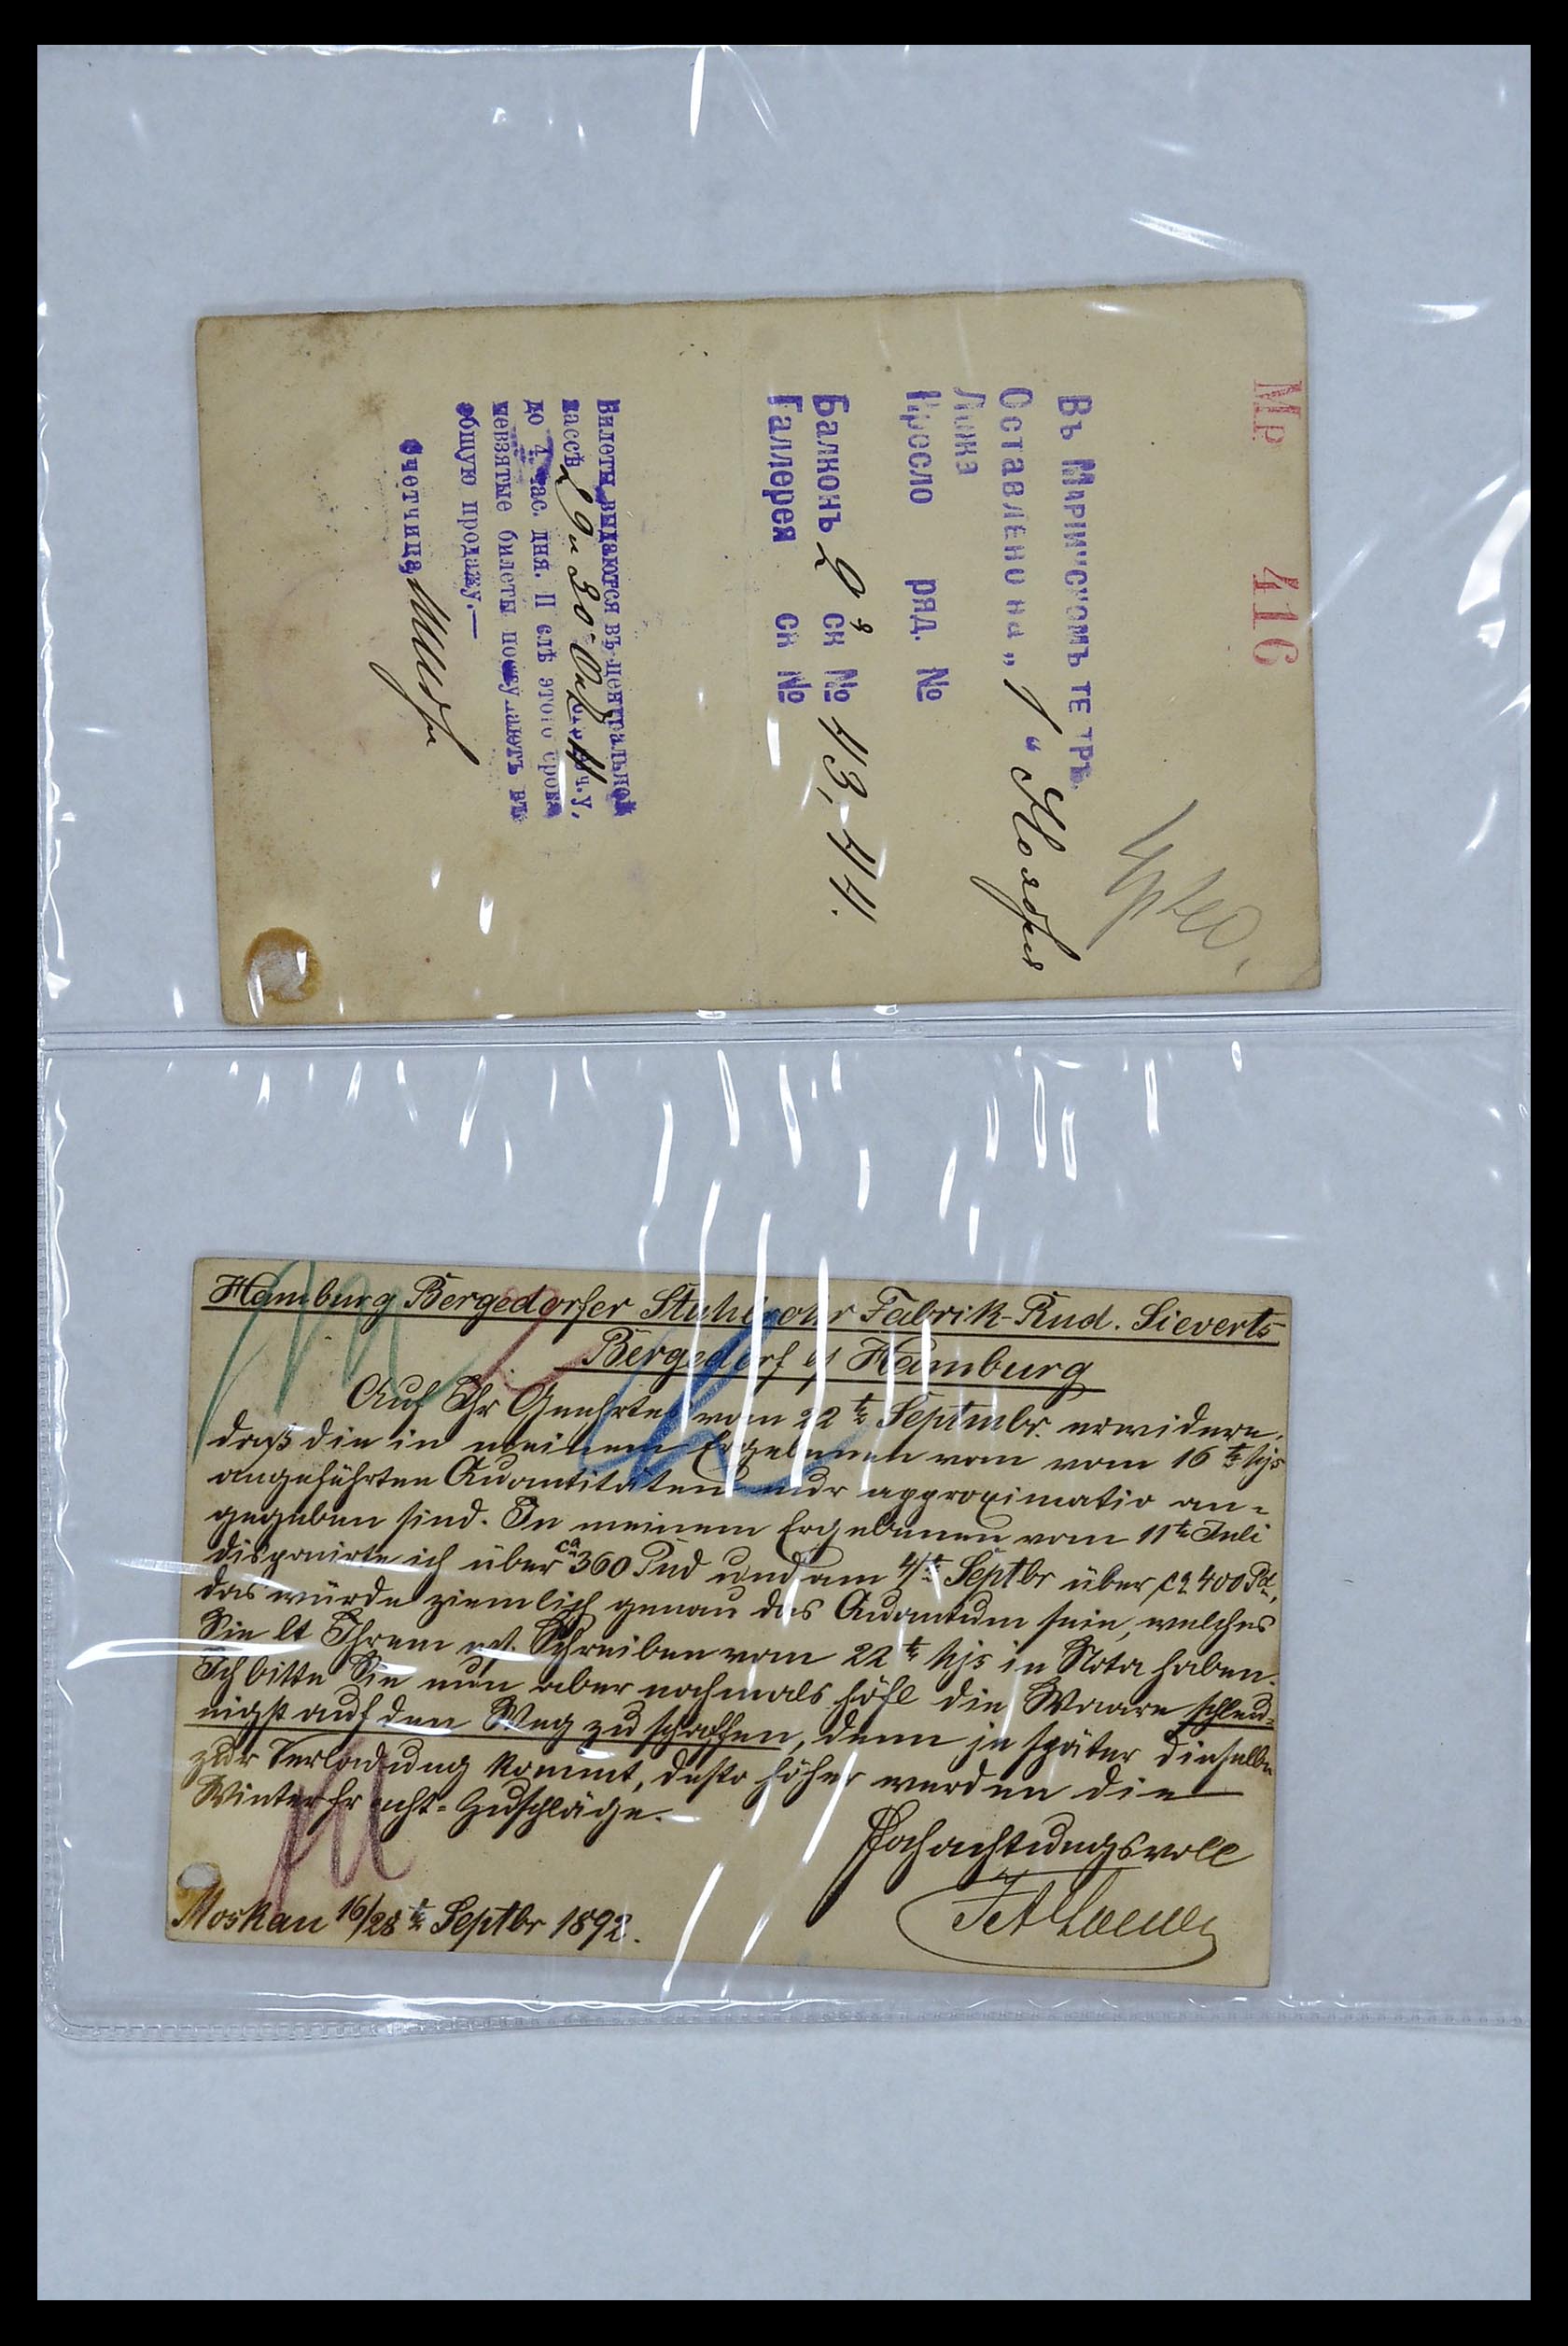 МР. 416
Въ Маріинскомъ ТЕАТРѢ
Оставлено на „1“ Ноября
Ложа
Кресло ряд. №
Балконъ 2 ск № 43, 44.
Галлерея ск №
Билеты выдаются въ центральной
кассѣ 29 и 30 Окт.
до 4 час. дня. Послѣ этого срока
невзятые билеты поступаютъ въ
общую продажу.—
Счетчица
Hamburg Bergedorfer Stuhlrohr Fabrik-Rud. Sieverts
Bergedorf b/ Hamburg
Auf Ihr Geehrtes vom 22ten Septmbr. erwidere,
daß die in meinem Ergebenen vom vom 16ten hjs
angeführten Quantitäten nur approximativ an-
gegeben sind. In meinem Ergebenen vom 11ten Juli
disponirte ich über ca 360 Pud und am 4/ten Septbr über ca 400 Pd,
das würde ziemlich genau das Quantum sein, welches
Sie lt Ihrem Schreiben vom 22ten hjs in Nota haben.
Ich bitte Sie nun aber nochmals höfl die Waare schleu-
nigst auf den Weg zu schaffen, denn je später dieselbe
zur Verladung kommt, desto höher werden die
Winterfracht-Zuschläge.
Hochachtungsvoll
Moskau 16/28ten Septbr 1892.